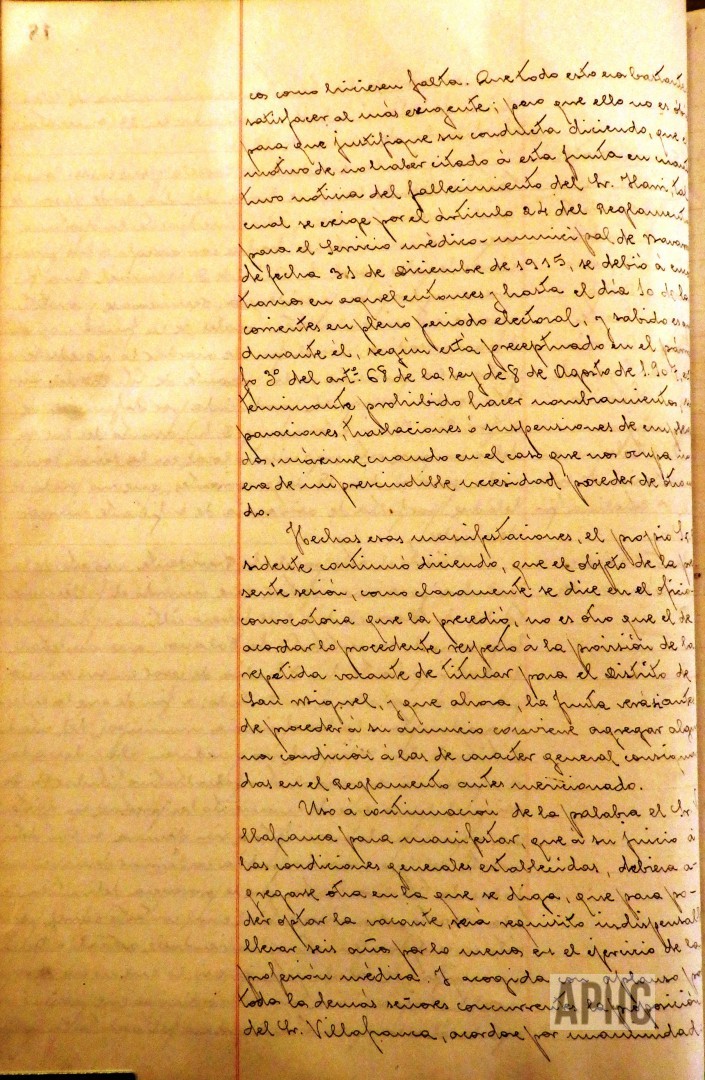 18
cos como hiciesen falta. Que todo esto era bastante
satisfacer al más exigente; pero que ello no es
para que justifique su conducta diciendo, que
motivo de no haber citado á esta Junta en cuan
tuvo noticia del fallecimiento del Sr. tal
cual se exige por el artículo 24 del Reglamento
para el Servicio médico-municipal de Navarr
de fecha 31 de Diciembre de 1915, se debió á en
trarnos en aquel entonces y hasta el día 10 de los
corrientes en pleno periodo electoral, y sabido es
durante él, según está preceptuado en el párra
fo 3º del artº. 68 de la ley de 8 de Agosto de 1.907,
terminante prohibido hacer nombramientos, se
paraciones, traslaciones ó suspensiones de emplea
dos, máxime cuando en el caso que nos ocupa
era de imprescindible necesidad proceder de
do.
Hechas esas manifestaciones, el propio Sr.
sidente continuó diciendo, que el objeto de la pre
sente sesión, como claramente se dice en el oficio-
convocatoria que la precedió, no es otro que el de
acordar lo procedente respecto á la provisión de la
repetida vacante de titular para el Distrito de
San Miguel, y que ahora, la Junta verá si antes
de proceder á su anuncio conviene agregar algu
na condición á las de carácter general consigna
das en el Reglamento antes mencionado.
Usó á continuación de la palabra el Sr.
llafranca para manifestar, que á su juicio á
las condiciones generales establecidas, debiera a-
gregarse otra en la que se diga, que para po-
der optar la vacante, sea requisito indispensabl
llevar seis años por lo menos en el ejercicio de la
profesión médica. Y acogida con aplauso por
toda la demas señores concurrente la proposición
del Sr. Villafranca, acordose por unanimidad
APNC